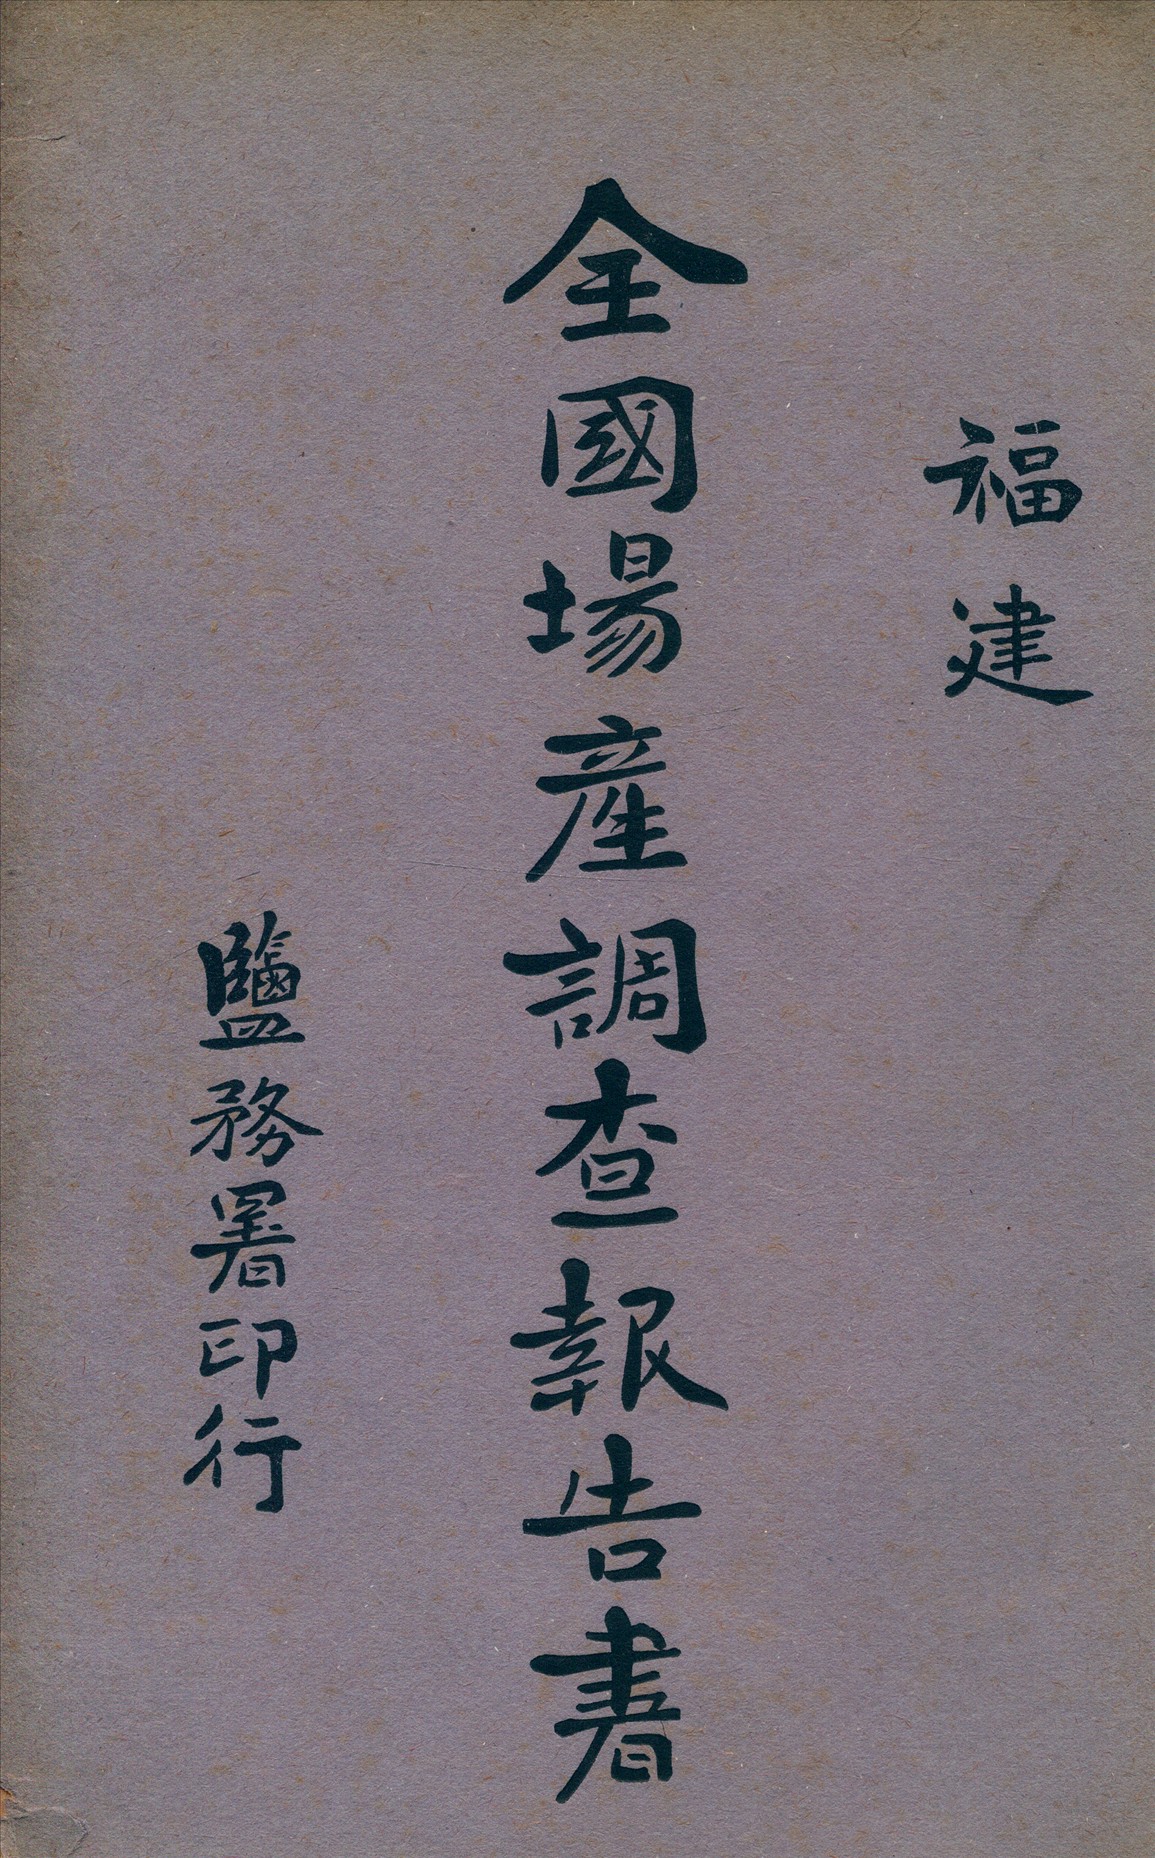 福建
全國場產調查報告書
鹽務署印行